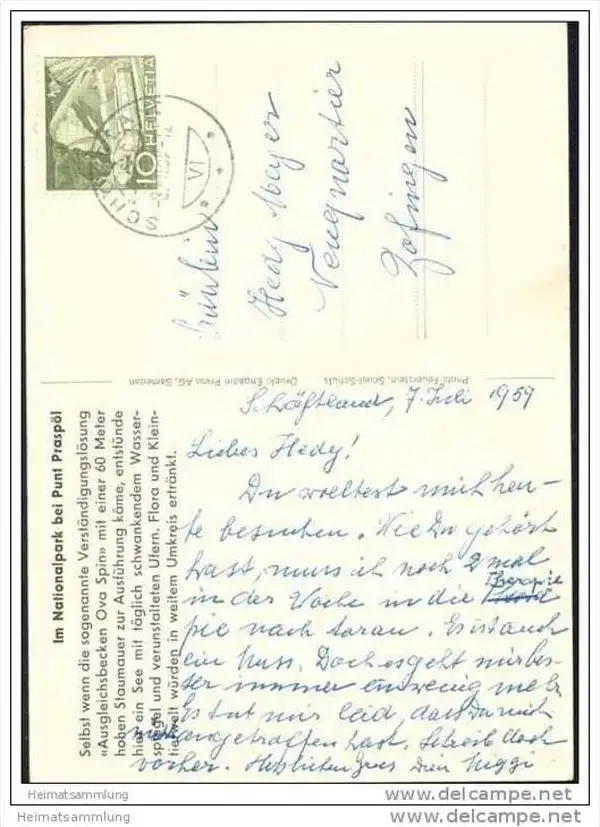 HELVETIA
10
VI
Fräulein
Hedy Meyer
Neuquartier
Zofingen
Photo Feuerstein, Scuol-Schuls
Druck: Engadin Press AG, Samedan
Im Nationalpark bei Punt Praspöl
Selbst wenn die sogenannte Verständigungslösung
«Ausgleichsbecken Ova Spin» mit einer 60 Meter
hohen Staumauer zur Ausführung käme, entstünde
hier ein See mit täglich schwankendem Wasser-
spiegel und verunstalteten Ufern. Flora und Klein-
tierwelt würden in weitem Umkreis ertränkt.
Schöftland, 7. Juli 1959
Liebes Hedy!
Du wolltest mich heu-
te besuchen. Wie Du gehört
hast, muss ich noch 2 mal
in der Woche in die Therapie
nach Aarau. Es ist auch
ein Muss. Doch es geht mir bes-
ser immer ein wenig mehr
Es tut mir leid, dass Du mich
nicht angetroffen hast. Schreib doch
vorher. Herzlichen Gruss Dein
Heimatsammlung
Heimatsammlung
www.delcampe.net
www.delcampe.net